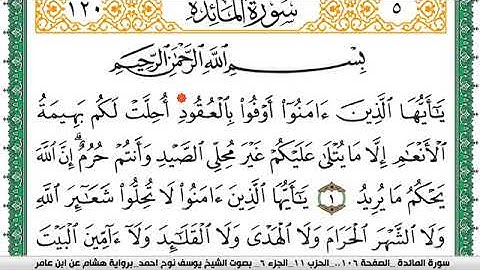 ٥ سورة المائدة ١٢٠
بِسْمِ ٱللَّهِ ٱلرَّحْمَٰنِ ٱلرَّحِيمِ
يَـٰٓأَيُّهَا ٱلَّذِينَ ءَامَنُوٓا۟ أَوْفُوا۟ بِٱلْعُقُودِ أُحِلَّتْ لَكُم بَهِيمَةُ
ٱلْأَنْعَـٰمِ إِلَّا مَا يُتْلَىٰ عَلَيْكُمْ غَيْرَ مُحِلِّى ٱلصَّيْدِ وَأَنتُمْ حُرُمٌ ۗ إِنَّ ٱللَّهَ
يَحْكُمُ مَا يُرِيدُ ١ يَـٰٓأَيُّهَا ٱلَّذِينَ ءَامَنُوا۟ لَا تُحِلُّوا۟ شَعَـٰٓئِرَ ٱللَّهِ
وَلَا ٱلشَّهْرَ ٱلْحَرَامَ وَلَا ٱلْهَدْىَ وَلَا ٱلْقَلَـٰٓئِدَ وَلَآ ءَآمِّينَ ٱلْبَيْتَ
سورة المائدة _الصفحة ١٠٦.. الحزب ١١_الجزء ٦_ بصوت الشيخ يوسف نوح احمد_برواية هشام عن ابن عامر